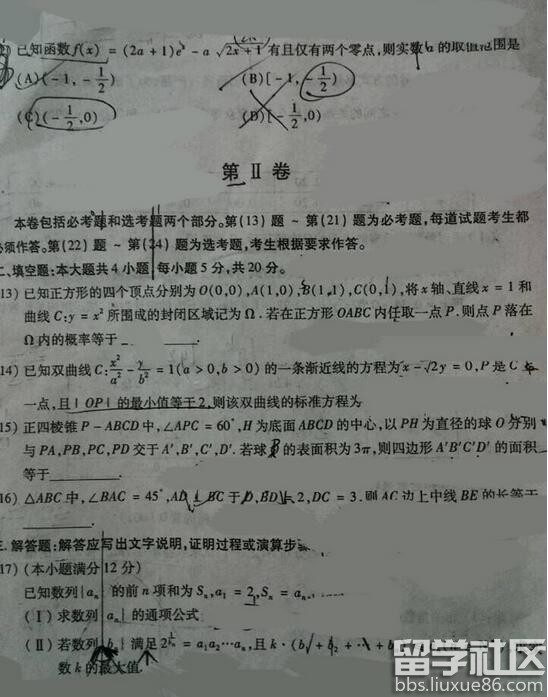 已知函数f(x) = (2a + 1)eˣ - a√(2x + 1) 有且仅有两个零点,则实数a 的取值范围是
(A)(- 1, - 1/2)
(B)[- 1, - 1/2)
(C)(- 1/2,0)
(D)[- 1/2,0)
第 Ⅱ 卷
本卷包括必考题和选考题两个部分。第(13) 题 ~ 第(21) 题为必考题,每道试题考生都
必须作答。第(22) 题 ~ 第(24) 题为选考题,考生根据要求作答。
二、填空题:本大题共4 小题,每小题5 分,共20 分。
13) 已知正方形的四个顶点分别为O(0,0),A(1,0),B(1,1),C(0,1),将x 轴、直线x = 1 和
曲线C:y = x² 所围成的封闭区域记为Ω. 若在正方形OABC 内任取一点P. 则点P 落在
Ω 内的概率等于
14) 已知双曲线C:x²/a² - y²/b² = 1(a > 0,b > 0) 的一条渐近线的方程为x - √2y = 0,P 是C
一点,且| OP| 的最小值等于2,则该双曲线的标准方程为
15) 正四棱锥P - ABCD 中,∠APC = 60°,H 为底面ABCD 的中心,以PH 为直径的球O 分别
与PA,PB,PC,PD 交于A′,B′,C′,D′. 若球 的表面积为3π,则四边形A′B′C′D′ 的面积
等于
16) △ABC 中,∠BAC = 45°,AD ⊥ BC 于D,BD = 2,DC = 3. 则AC 边上中线BE 的长等于
三、解答题:解答应写出文字说明,证明过程或演算步
17) (本小题满分12 分)
已知数列{aₙ} 的前n 项和为Sₙ,a₁ = 2,Sₙ = aₙ
(Ⅰ) 求数列{aₙ} 的通项公式
(Ⅱ) 若数列{bₙ} 满足 = a₁a₂⋯aₙ,且k · (b₁ + b₂ + ⋯ + b
数k 的最大值.
留学社区
bbs.liuxue86.com